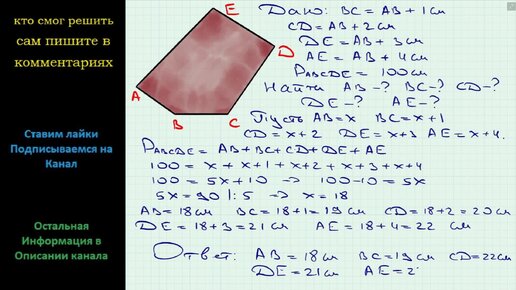 кто смог решить
сам пишите в
комментариях
Ставим лайки
Подписываемся на
Канал
Остальная
Информация в
Описании канала
E
D
A
B
C
Дано: BC = AB + 1см
CD = AB + 2см
DE = AB + 3см
AE = AB + 4см
PABCDE = 100см
Найти AB - ? BC - ? CD - ?
DE - ? AE - ?
Пусть AB = x BC = x + 1
CD = x + 2 DE = x + 3 AE = x + 4.
PABCDE = AB + BC + CD + DE + AE
100 = x + x + 1 + x + 2 + x + 3 + x + 4
100 = 5x + 10 → 100 - 10 = 5x
5x = 90 | : 5 → x = 18
AB = 18см BC = 18 + 1 = 19см CD = 18 + 2 = 20см
DE = 18 + 3 = 21см AE = 18 + 4 = 22 см
Ответ: AB = 18см BC = 19см CD = 22см
DE = 21см AE = 2